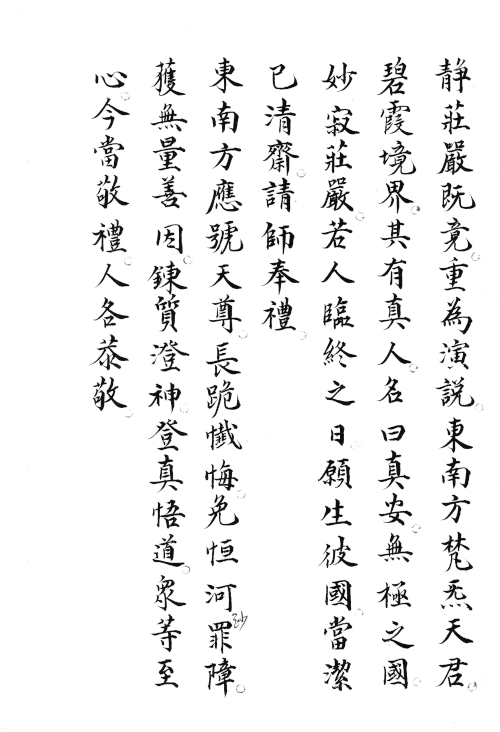 静莊嚴既竟。重為演説。東南方梵炁天君。
碧霞境界。其有真人。名曰真安。無極之國。
妙寂莊嚴。若人臨終之日。願生彼國。當潔
已清齋。請師奉禮。
東南方應號天尊。長跪懺悔。免恒河沙罪障。
獲無量善因。鍊質澄神。登真悟道。衆等至
心。今當敬禮。人各恭敬。